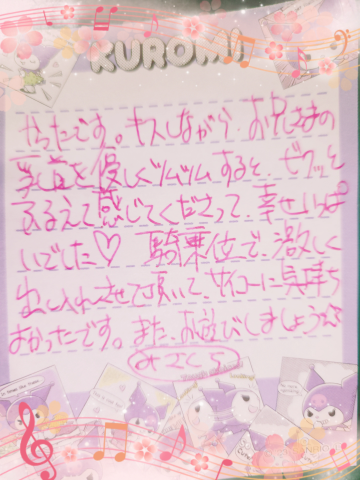 KUROMI
かったです。キスしながら、お兄さまの
乳首を優しくツムツムすると、ビクッと
ふるえて感じてくださって、幸せいっぱ
いでした♡ 騎乗位で、激しく
出し入れさせて頂いて、サイコーに気持ち
よかったです。また、お遊びしましょうね☆